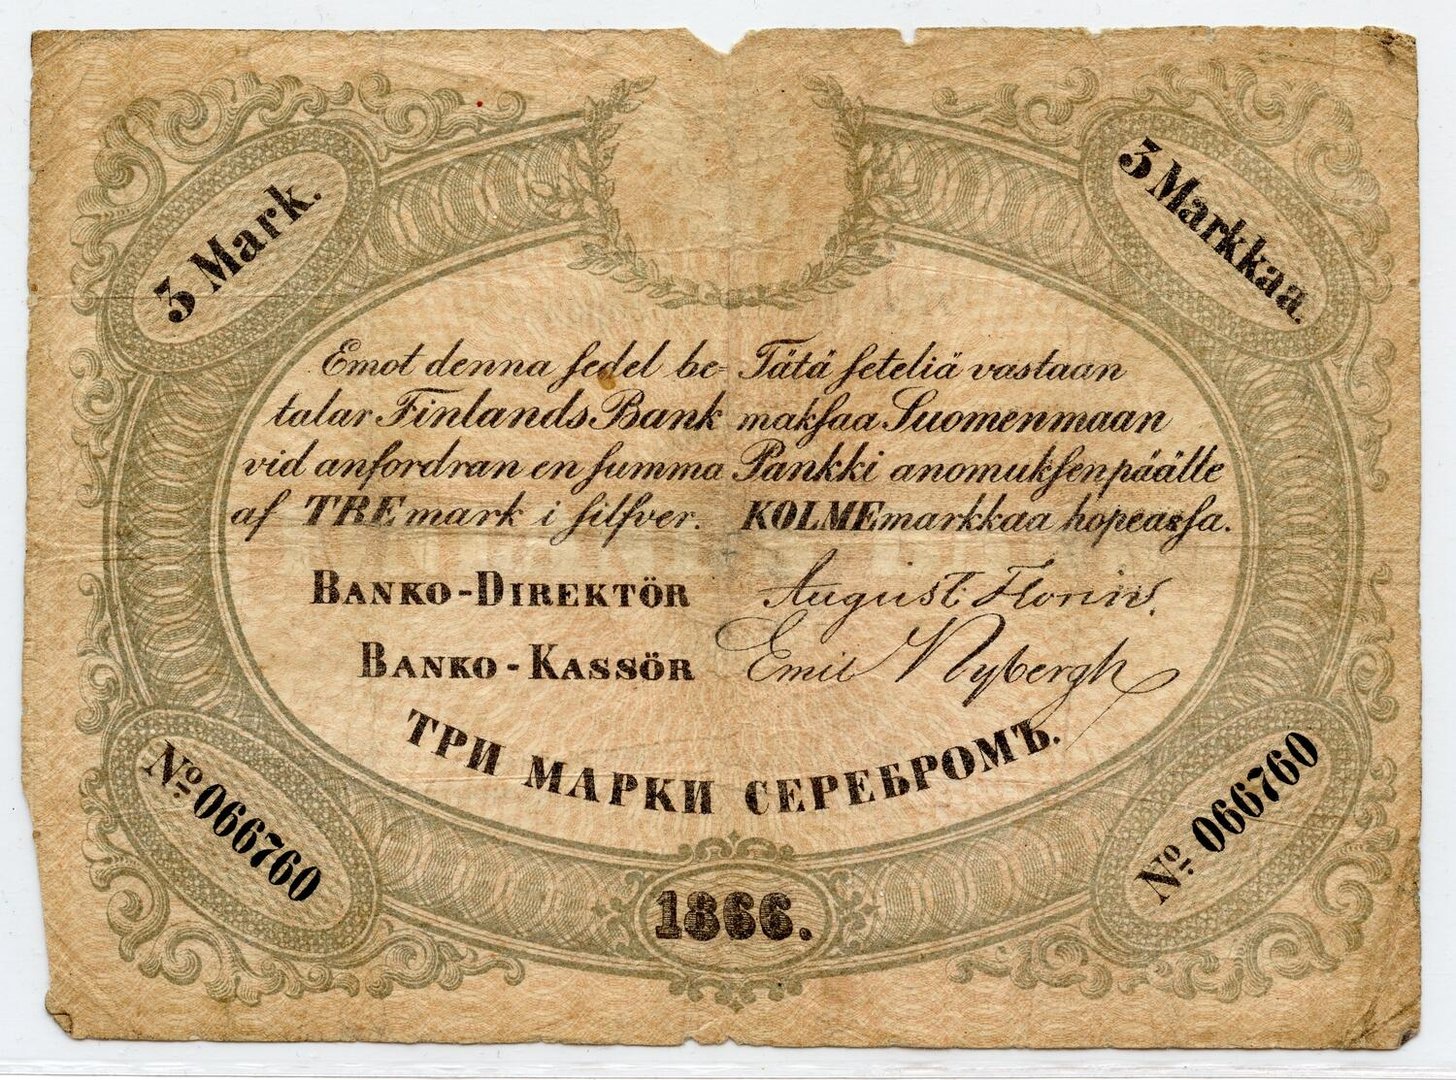 3 Mark.
3 Markkaa.
Emot denna sedel be=
talar Finlands Bank
vid anfordran en summa
af TRE mark i silfver.
Tätä seteliä vastaan
maksaa Suomenmaan
Pankki anomuksen päälle
KOLME markkaa hopeassa.
BANKO-DIREKTÖR
August Florin.
BANKO-KASSÖR
Emil Nybergh
ТРИ МАРКИ СЕРЕБРОМЪ.
No. 066760
No. 066760
1866.